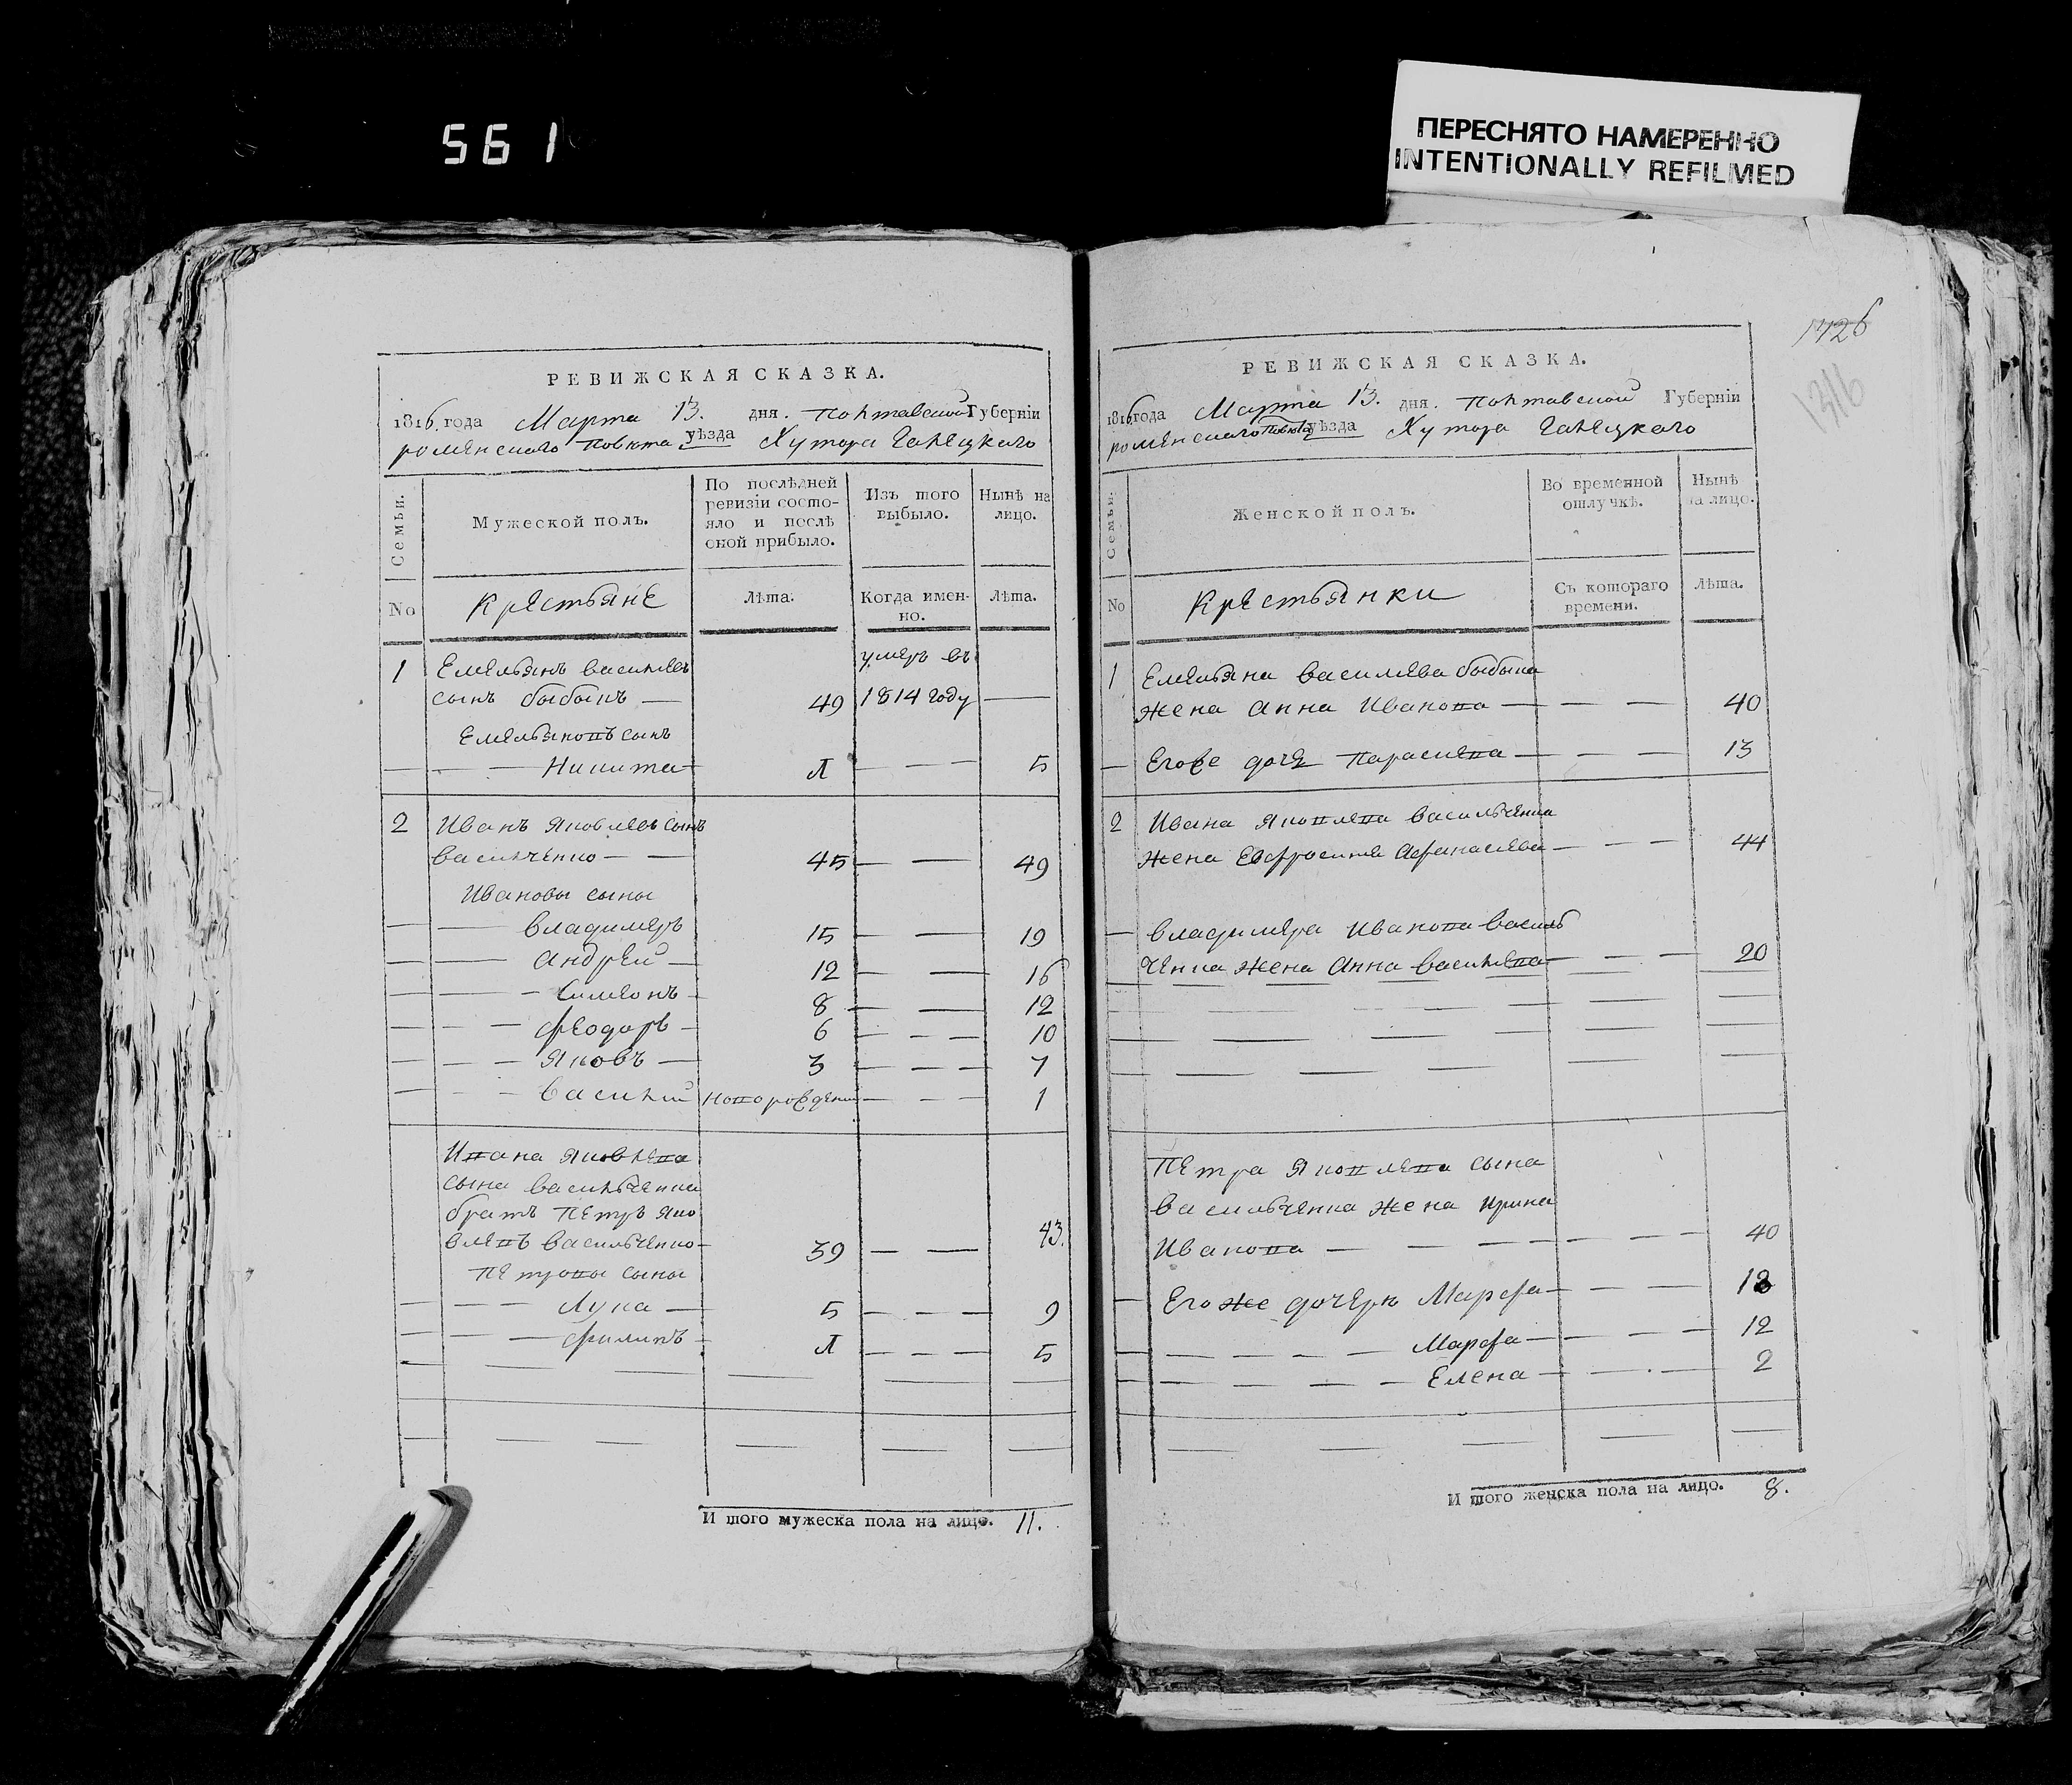 561
ПЕРЕСНЯТО НАМЕРЕННО
INTENTIONALLY REFILMED
РЕВИЖСКАЯ СКАЗКА.
1816 года Марта 13. дня. Полтавской Губерніи
роменского Повѣта уѣзда Хутора Галецкаго
Семьи. Мужеской полъ. По послѣдней ревизіи состояло и послѣ оной прибыло. Изъ того выбыло. Нынѣ на лицо.
No Крестьяне Лѣта. Когда именно. Лѣта.
1 Емельянъ васильевъ умеръ въ
сынъ бобынъ — 49 1814 году —
Емельяновъ сынъ
— — — Никита — Л — — — 5
2 Иванъ Яковлевъ сынъ
васильченко — — 45 — — 49
Ивановы сыны
— — владимеръ 15 — — 19
— — андрей — 12 — — 16
— — — Симеонъ — 8 — — 12
— — — феодоръ — 6 — — — 10
— — — яковъ — 3 — — — 7
— — — василий новорожденн — — — 1
Ивана яковлева
сына васильченка
братъ Петръ яко
влевъ васильченко — 39 — — 43.
Петровы сыны
— — — — Лука — 5 — — — 9
— — — — филипъ — Л — — — 5
И того мужеска пола на лицо. 11.
1426
1316
РЕВИЖСКАЯ СКАЗКА.
1816 года Марта 13. дня. Полтавской Губерніи
роменского Повѣта уѣзда Хутора Галецкаго
Семьи. Женской полъ. Во временной отлучкѣ. Нынѣ на лицо.
No Крестьянки Съ котораго времени. Лѣта.
1 Емельяна василева бобына
жена анна Иванова — — — — 40
— Егоже дочь Параскева — — — — 13
2 Ивана яковлева васильченка
жена Евфросиния афанасиева — — — 44
— владимера Иванова василь
ченка жена анна василева — — — 20
Петра яковлева сына
васильченка жена ирина
Иванова — — — — — — — 40
— Егоже дочери Марфа — — — —
— — — — — Марфа — — — — 12
— — — — — Елена — — — — 2
И того женска пола на лицо. 8.